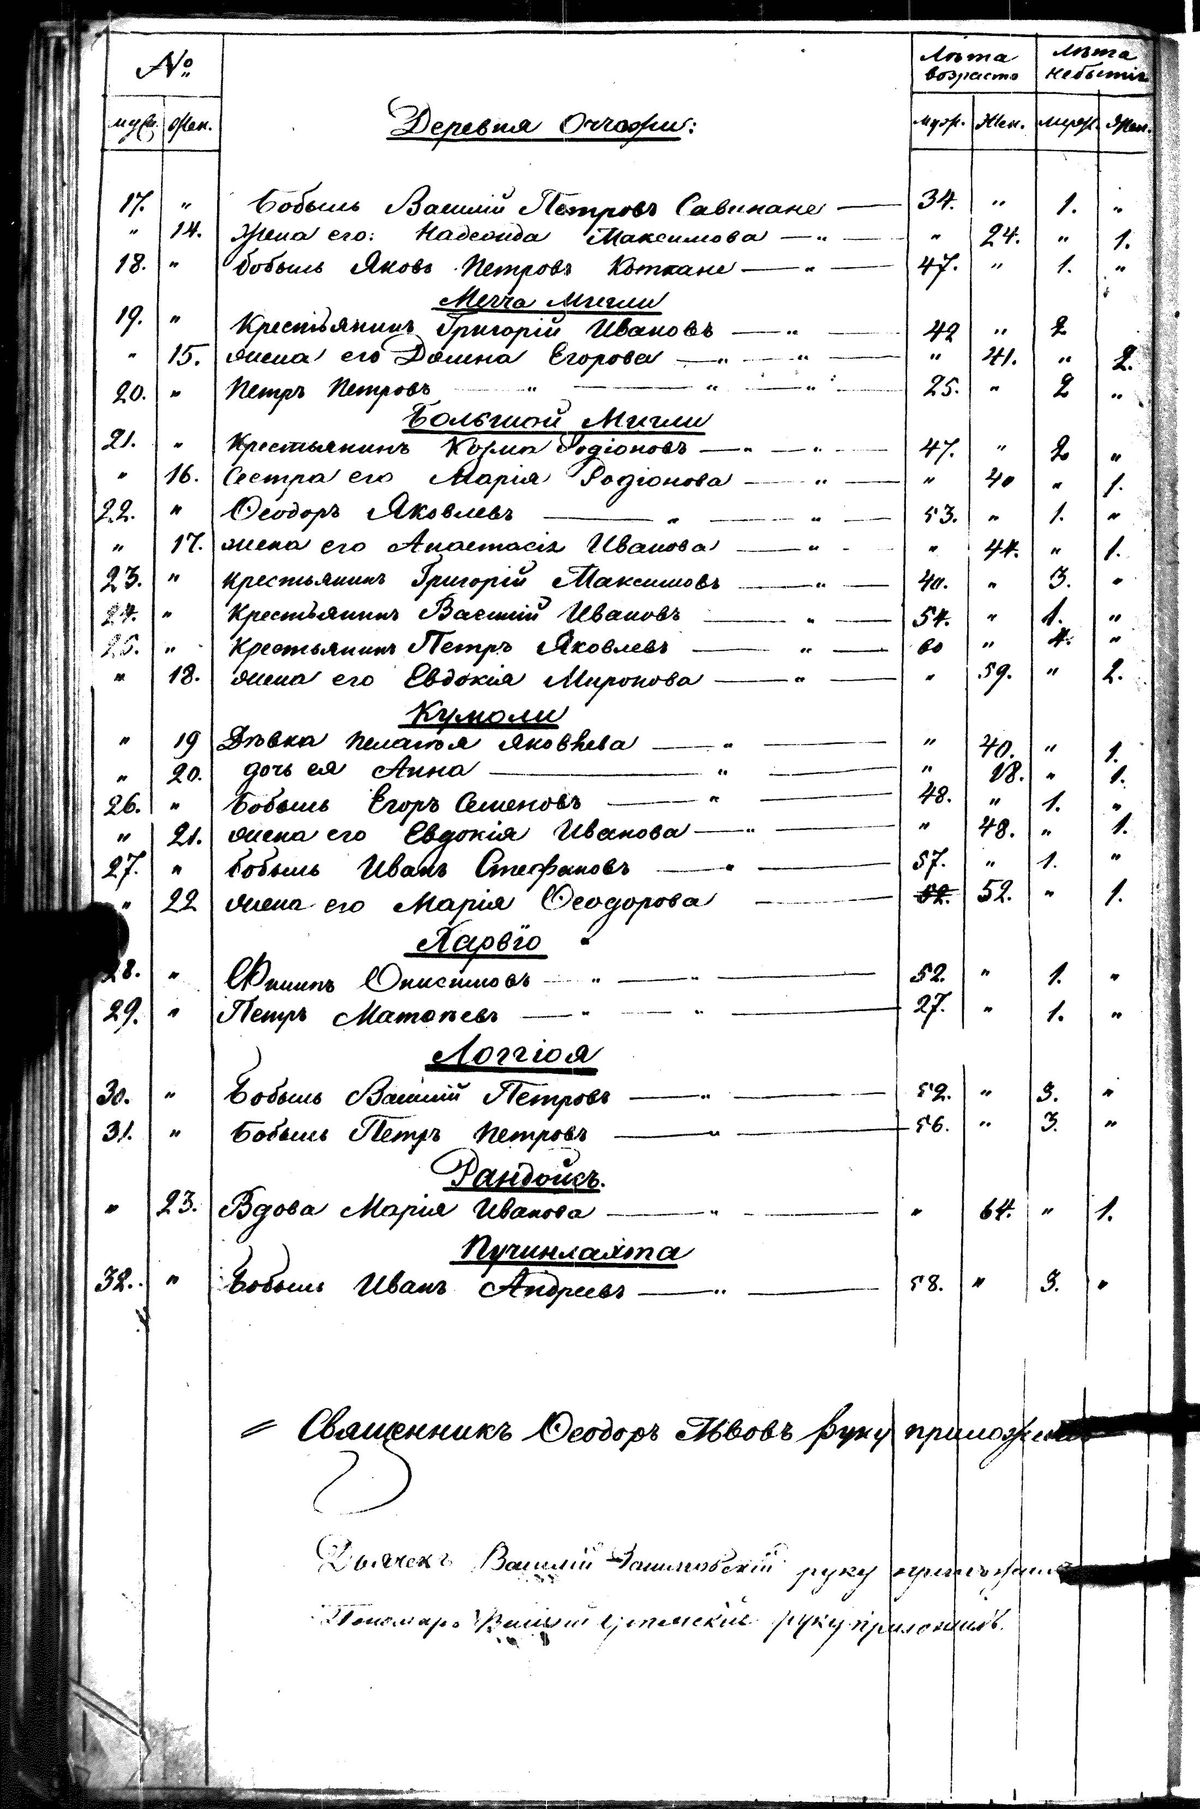 № Лѣта возраста Лѣта небытія
муж. жен. Деревня Оччафи: муж. жен. муж. жен.
17. " Бобыль Василій Петровъ Савинане — 34. " 1. "
" 14. Жена его: Надежда Максимова — " — " 24. " 1.
18. " бобыль Яковъ Петровъ Коткане — " — 47. " 1. "
Мечча Мигли
19. " Крестьянинъ Григорій Ивановъ — " — 42 " 2
" 15. жена его Домна Егорова — " — " — " 41. " 2.
20. " Петръ Петровъ " — " — " 25. " 2 "
Большой Мигли
21. " Крестьянинъ Козма Родіоновъ — " — " — 47. " 2 "
" 16. Сестра его Марія Родіонова — " — " 40 " 1.
22. " Ѳеодоръ Яковлевъ — " — " — 53. " 1. "
" 17. жена его Анастасія Иванова — " — " 44. " 1.
23. " крестьянинъ Григорій Максимовъ — " — 40. " 3. "
24. " Крестьянинъ Василій Ивановъ — " — 54. " 1. "
25. " Крестьянинъ Петръ Яковлевъ — " — 60 " 4. "
" 18. жена его Евдокія Миронова — " — " 59. " 2.
Кумоли
" 19 Дѣвка Пелагея Яковлева — " — " 40. " 1.
" 20. дочь ея Анна — " — " 18. " 1.
26. " Бобыль Егоръ Семеновъ — " — 48. " 1. "
" 21. жена его Евдокія Иванова — " — " 48. " 1.
27. " бобыль Иванъ Стефановъ — " — 57. " 1. "
" 22 жена его Марія Ѳеодорова — 52. 52. " 1.
Ларвіо
28. " Филипъ Онисимовъ — " — " — 52. " 1. "
29. " Петръ Матвѣевъ — " — " — 27. " 1. "
Логгіоя
30. " Бобыль Василій Петровъ — " — 52. " 3. "
31. " Бобыль Петръ Петровъ — " — 56. " 3. "
Рандойсъ.
" 23. Вдова Марія Иванова — " — " 64. " 1.
Пучинлахта
32. " Бобыль Иванъ Андреевъ — " — 58. " 3. "
Священникъ Ѳеодоръ Львовъ руку приложилъ
Дьячекъ Василій руку приложилъ
Пономарь Василій руку приложилъ.